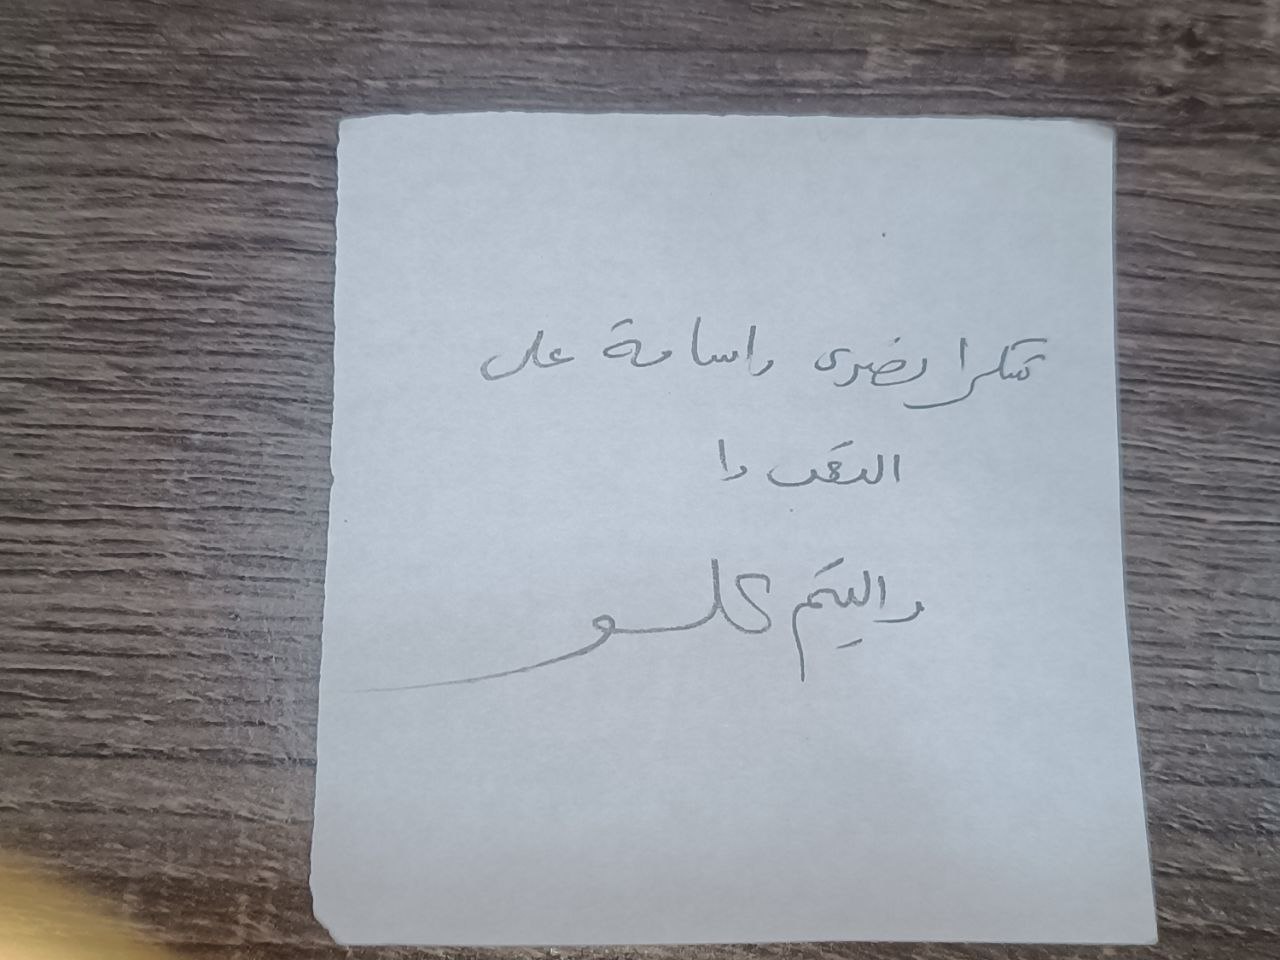 شكرا بصرى واسامة على
التعب دا
واليكم كلو